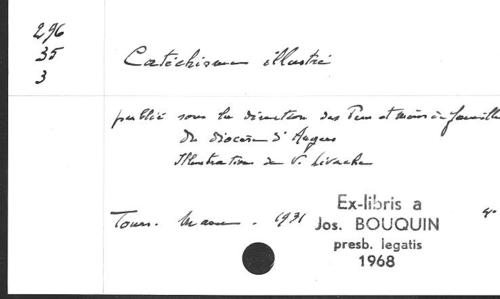 296
35
3
Catéchisme illustré
publié sous la direction des Pères et mères de famille
du diocèse d'Angers
Illustration de V. Livache
Tours. Mame. 1931
4°
Ex-libris a
Jos. BOUQUIN
presb. legatis
1968